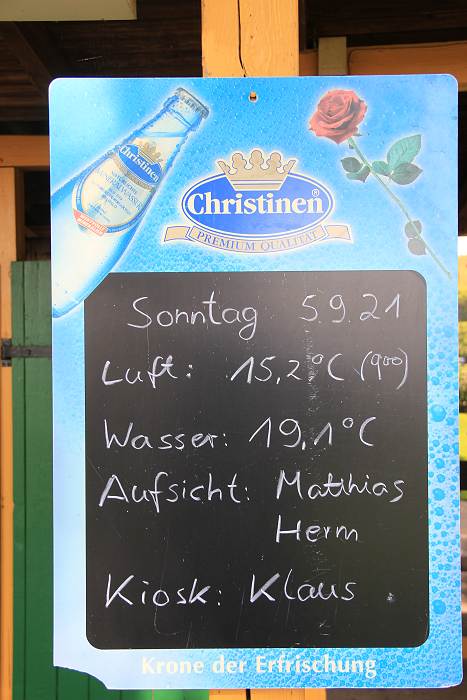 Christinen
MINERALWASSER
Christinen®
PREMIUM QUALITÄT
Sonntag 5.9.21
Luft: 15,2°C (900)
Wasser: 19,1°C
Aufsicht: Matthias
Herm
Kiosk: Klaus
Krone der Erfrischung